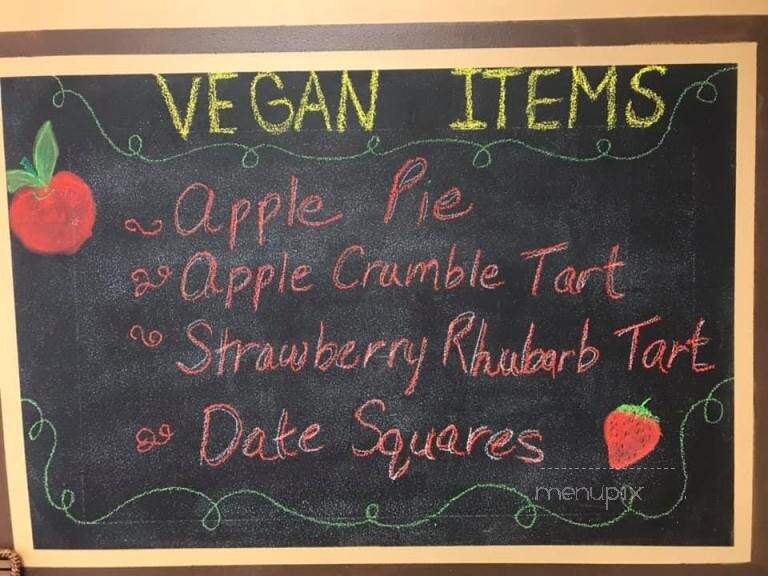 VEGAN ITEMS
Apple Pie
Apple Crumble Tart
Strawberry Rhubarb Tart
Date Squares
menupix